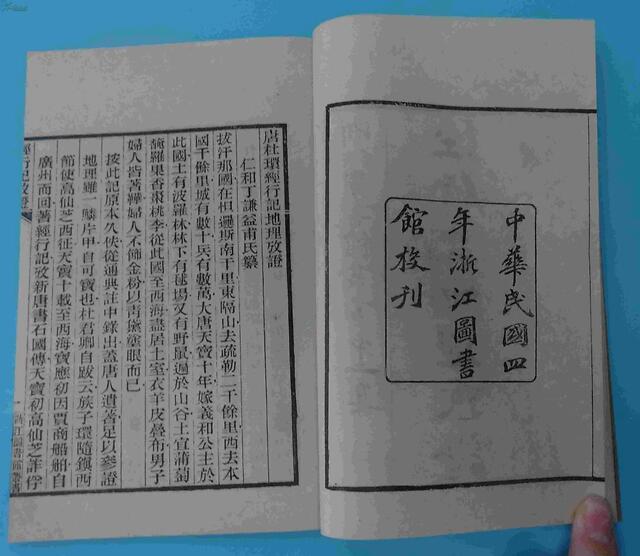 中華民國四
年浙江圖書
館校刊
唐杜環經行記地理攷證
仁和丁謙益甫氏纂
拔汗那國在怛邏斯南千里東隔山去疏勒二千餘里西去本
國千餘里城有數十兵有數萬大唐天寶十年嫁義和公主於
此國土有波羅林林下有毬場又有野鼠遍於山谷土宜蒲萄
馣羅果香棗桃李從此國至西海盡居土室衣羊皮疊布男子
婦人皆著鞾婦人不飾金粉以青黛塗眼而已
按此記原本久佚從通典註中錄出蓋唐人遺著足以參證
地理雖一鱗片甲自可寶也杜君卿自跋云族子環隨鎮西
節使高仙芝西征天寶十載至西海寶應初因賈商船舶自
廣州而回著經行記攷新唐書石國傳天寶初高仙芝誶俘
經行記攷證
一 浙江圖書館